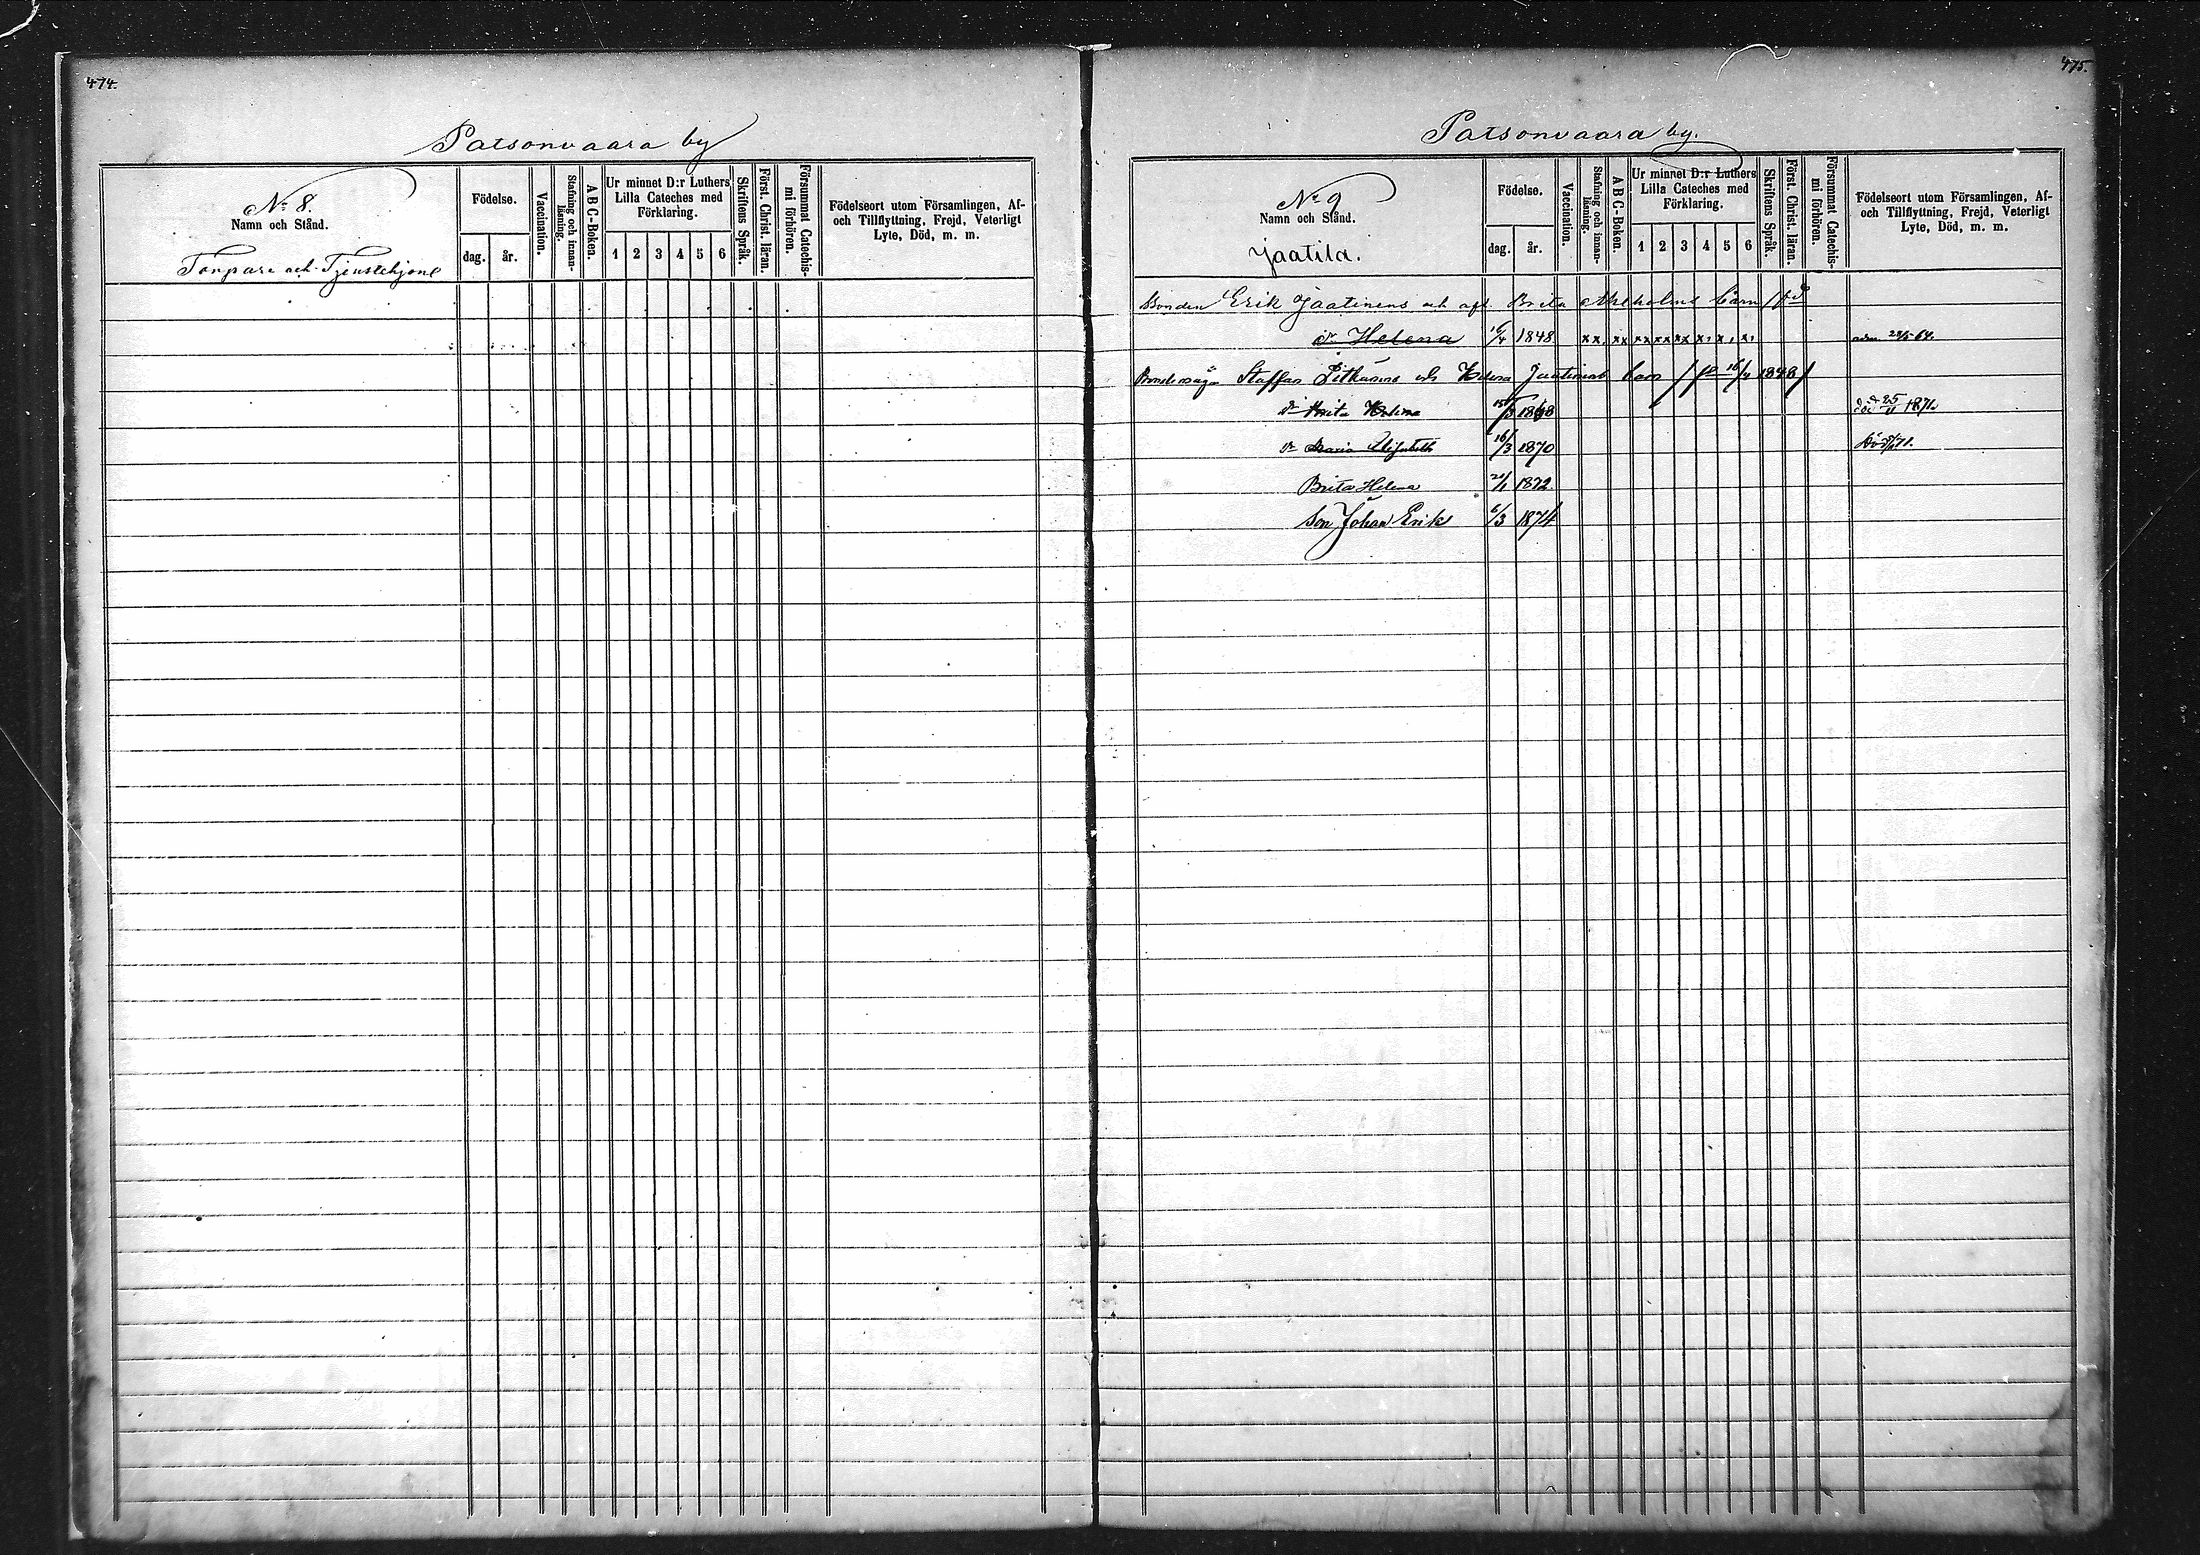 474.
Patsonvaara by
No 8.
Namn och Stånd.
Torpare och Tjenstehjone
Födelse.
dag. år.
Vaccination.
Stafning och innan-
läsning.
A B C-Boken.
Ur minnet D:r Luthers
Lilla Cateches med
Förklaring.
1 2 3 4 5 6
Skriftens Språk.
Först. Christ. läran.
Försummat Catechis-
mi förhören.
Födelseort utom Församlingen, Af-
och Tillflyttning, Frejd, Veterligt
Lyte, Död, m. m.
475.
Patsonvaara by.
No 9
Namn och Stånd.
Jaatila.
Födelse.
dag. år.
Vaccination.
Stafning och innan-
läsning.
A B C-Boken.
Ur minnet D:r Luthers
Lilla Cateches med
Förklaring.
1 2 3 4 5 6
Skriftens Språk.
Först. Christ. läran.
Försummat Catechis-
mi förhören.
Födelseort utom Församlingen, Af-
och Tillflyttning, Frejd, Veterligt
Lyte, Död, m. m.
Bonden Erik Jaatinens och afl. Brita barn
dr Helena 16/4 1848 xx xx xx xx xx x x x
Staffan Pitkänens och Helena Jaatinens barn / fd 16/4 1848 /
dr Brita Helena 15/5 1868 1871.
dr Maria Elisabeth 16/3 1870
Brita Helena 21/1 1872.
Son Johan Erik 6/3 1874